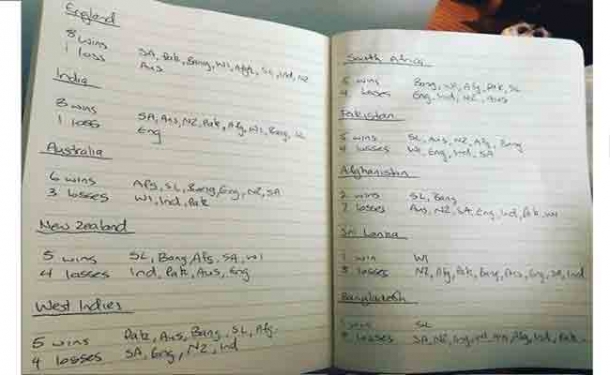 England
8 wins SA, Pak, Bang, WI, Afg, SL, Ind, NZ
1 loss Aus
India
8 wins SA, Aus, NZ, Pak, Afg, WI, Bang, SL
1 loss Eng
Australia
6 wins Afg, SL, Bang, Eng, NZ, SA
3 losses WI, Ind, Pak
New Zealand
5 wins SL, Bang, Afg, SA, WI
4 losses Ind, Pak, Aus, Eng
West Indies
5 wins Pak, Aus, Bang, SL, Afg.
4 losses SA, Eng, NZ, Ind
South Africa
5 wins Bang, WI, Afg, Pak, SL
4 losses Eng, Ind, NZ, Aus
Pakistan
5 wins SL, Aus, NZ, Afg, Bang
4 losses WI, Eng, Ind, SA
Afghanistan
2 wins SL, Bang
7 losses Aus, NZ, SA, Eng, Ind, Pak, WI
Sri Lanka
1 win WI
8 losses NZ, Afg, Pak, Bang, Aus, Eng, SA, Ind
Bangladesh
SL
losses SA, NZ, Eng, Afg, Ind, Pak